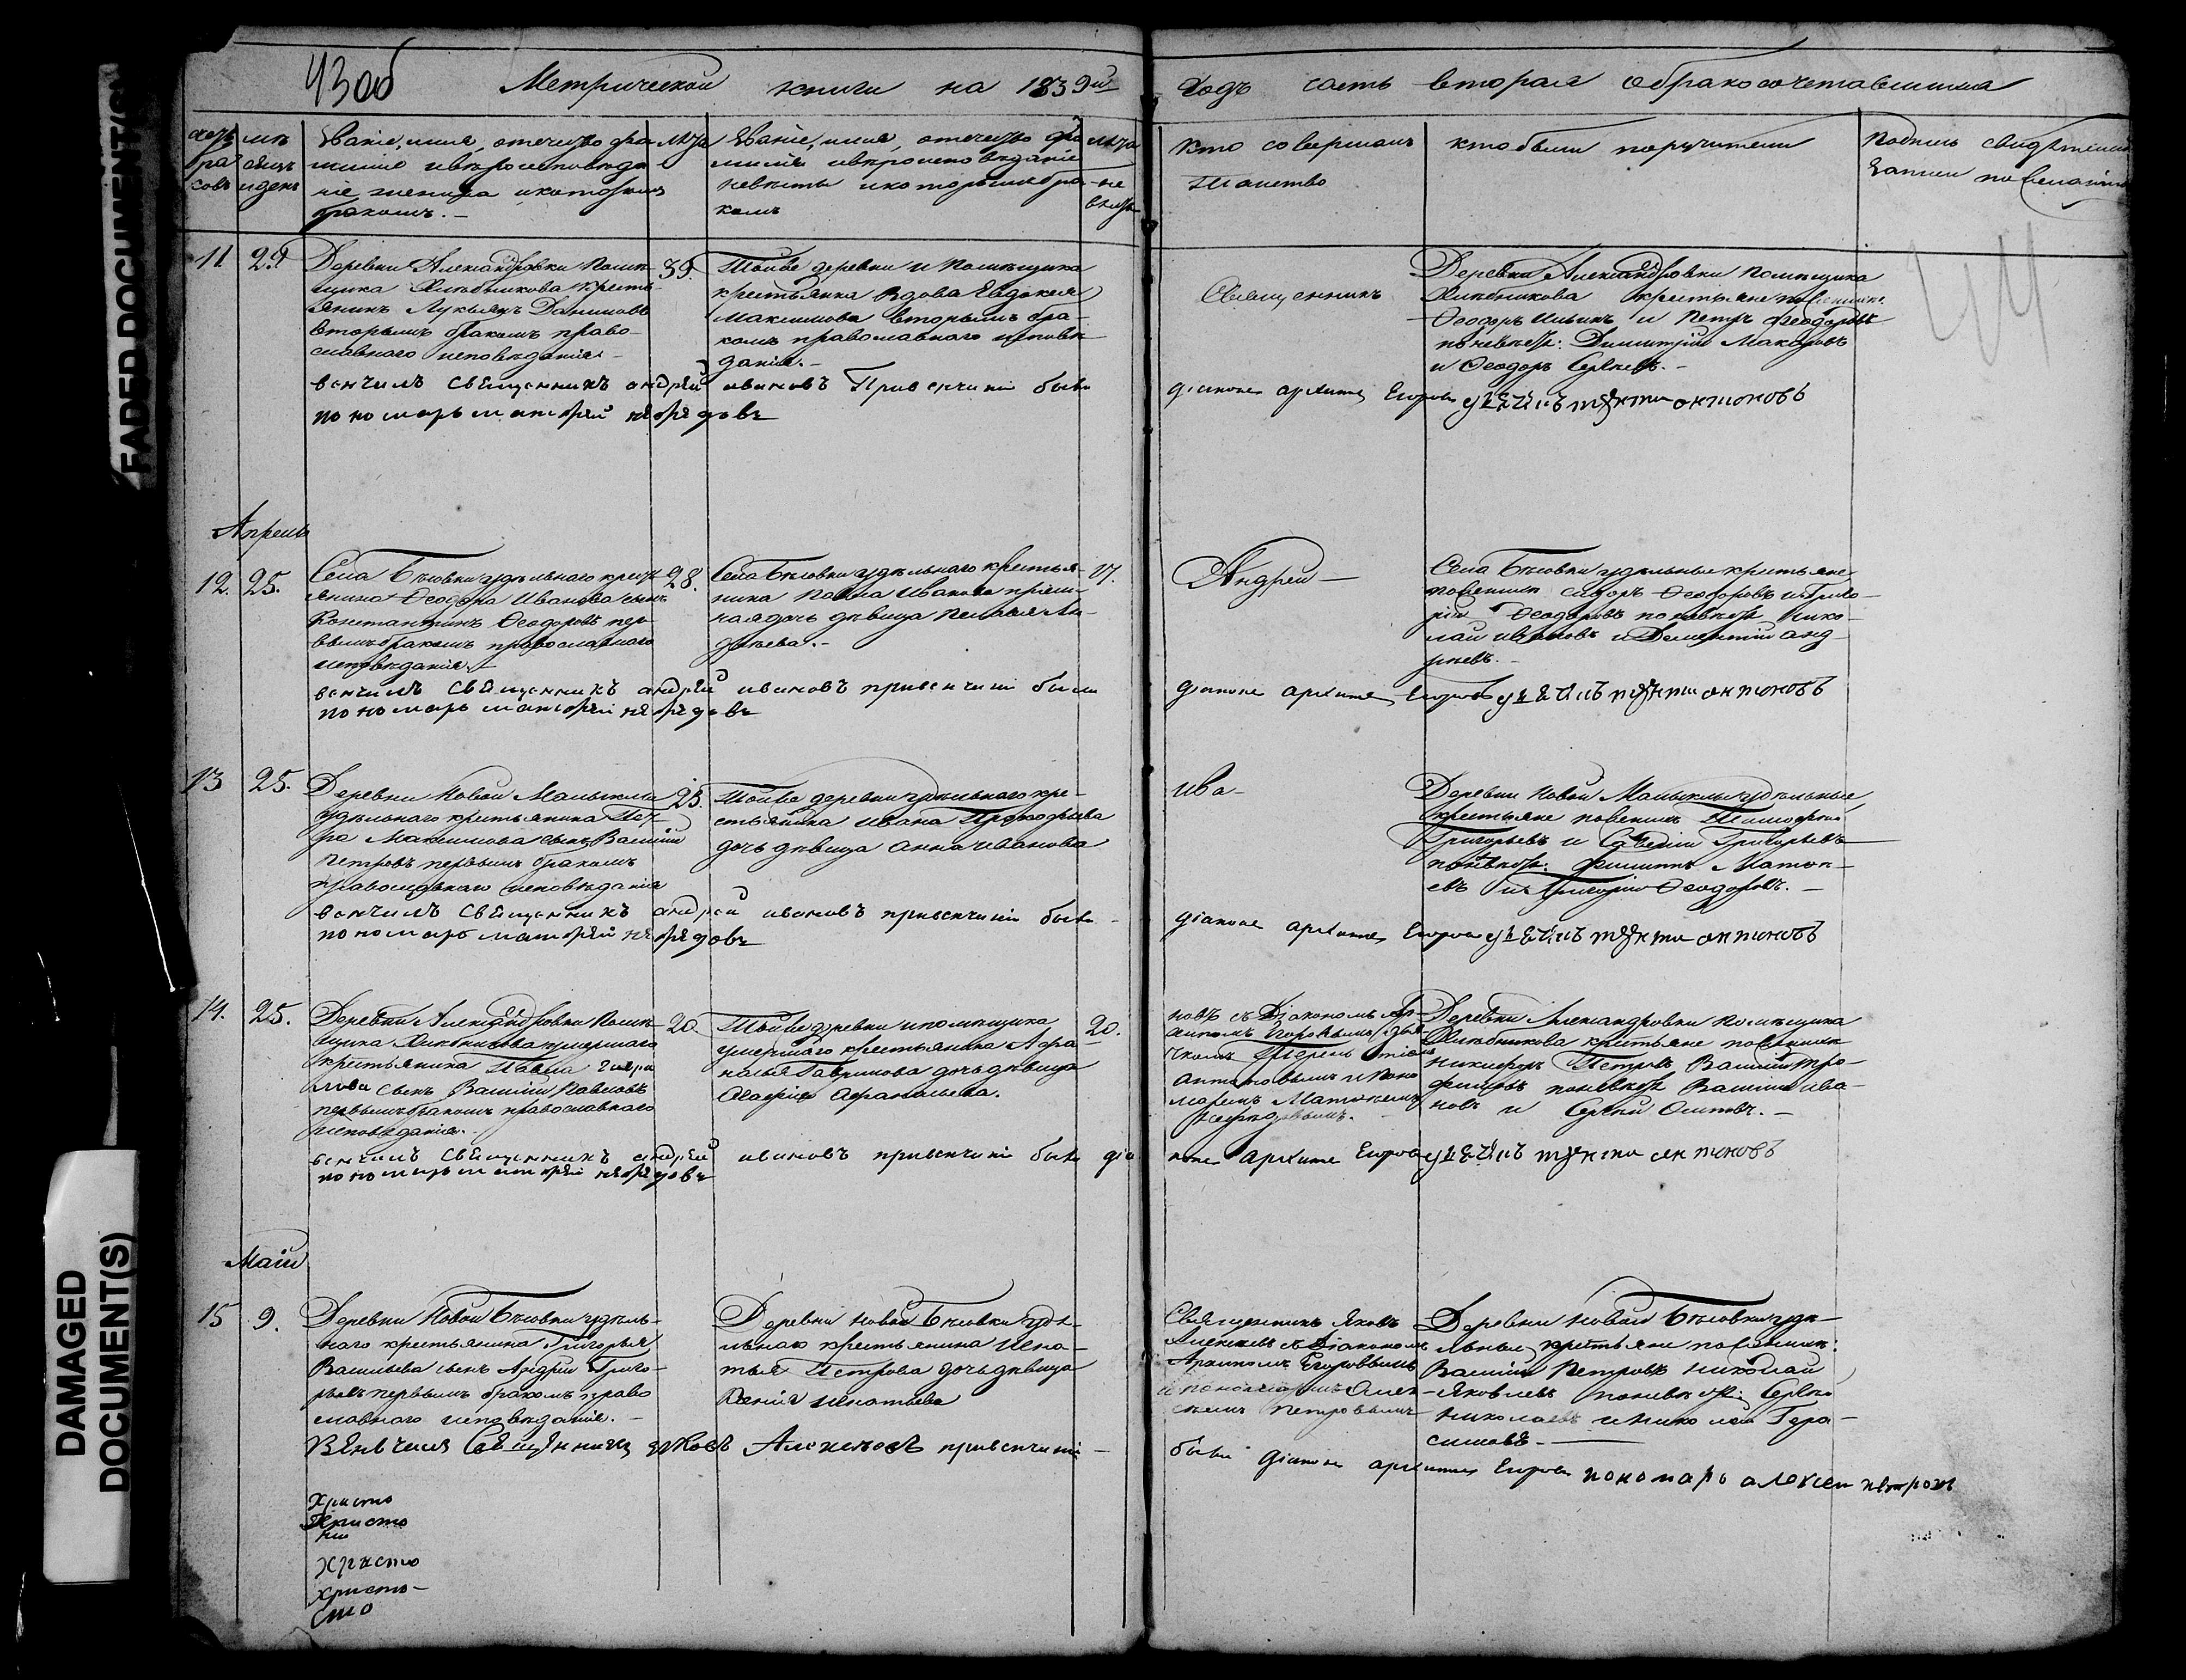 FADED DOCUMENT(S)
DAMAGED
DOCUMENT(S)
43об
Метрической книги на 1839й
Годъ часть вторая обракосочетавшихся
44
Званіе, имя, отечество фа
миліе ивѣроисповѣда
ніе жениха икоторымъ
бракомъ.-
лѣта
Званіе, имя, отечество фа
миліе ивѣроисповѣданіе
невѣсты икоторымъбра-
комъ
лѣта
не
вѣсты
Кто совершалъ
таинство
кто были поручители
11. 29.
Деревни Александровки помѣ-
щика Хлѣбникова кресть-
янинъ Лукьянъ Даниловъ
вторымъ бракомъ право-
славнаго исповѣданія.-
39.
Тойже деревни и помѣщика
крестьянка вдова Евдокея
Максимова вторымъ бра-
комъ православнаго исповѣ-
данія.-
Священникъ
Деревни Александровки помѣщика
Хлѣбникова крестьяне
Ѳеодоръ Ильинъ и Петръ Феодоровъ
поневѣстѣ: Димитрій Макаровъ
и Ѳеодоръ Сергѣевъ.-
венчилъ священникъ андрей ивановъ При венчиніи были
пономарь матфей
діаконъ архипъ Егоровъ антоновъ
Апрель
12. 25.
Села Бѣловки удѣльнаго крест-
янина Ѳеодора Иванова сынъ
Константинъ Ѳеодоровъ пер-
вымъ бракомъ православнаго
исповѣданія.-
28.
Села Бѣловки удѣльнаго крестья-
нина Ивановa
ная дочь дѣвица Пелагея Ан-
дрѣева.-
17.
Андрей-
Села Бѣловки удѣльные крестьяне
поженихѣ Сидоръ Ѳеодоровъ иГриго-
рій Ѳеодоровъ поневѣстѣ Нико-
лай ивановъ иДементій анд-
рѣевъ.-
венчилъ священникъ андрей ивановъ привенчиніи были
пономарь матфей
діаконъ архипъ Егоровъ антоновъ
13 25.
Деревни Новой Малыклы
удѣльнаго крестьянина Пет-
ра Максимова сынъ Василій
Петровъ первымъ бракомъ
православнаго исповѣданія
23.
Тойже деревни удѣльнаго кре-
стьянина ивана Прокофьева
дочь дѣвица анна иванова
ива-
Деревни Новой Малыклы удѣльные
крестьяне поженихѣ Тимофей
Григорьевъ и Савелій Григорьевъ
поневѣстѣ: Филиппъ Матѳе-
евъ иГригорій Ѳеодоровъ.-
венчилъ священникъ андрей ивановъ привенчиніи были
пономарь матфей
діаконъ архипъ Егоровъ антоновъ
14. 25.
Деревни Александровки помѣ-
щика Хлѣбникова умершаго
крестьянина Павла Гаври
лова сынъ Василій Павловъ
первымъ бракомъ православнаго
исповѣданія.-
20.
Тойже деревни ипомѣщика
умершаго крестьянина Афа-
насья Гаврилова дочь дѣвица
Афанасьева.
20.
новъ съ Діакономъ Ар-
хипомъ Егоровымъ дья-
чкомъ
Антоновымъ иПоно
маремъ Матѳеемъ
Деревни Александровки помѣщика
Хлѣбникова крестьяне поженихѣ
никифоръ Петровъ Василій Тро-
фимовъ поневѣстѣ Василій ива-
новъ и Сергѣй Осиповъ.-
венчилъ священникъ андрей ивановъ привенчиніи были діа
пономарь матфей
конъ архипъ Егоровъ антоновъ
Маій
15 9.
Деревни Новой Бѣловки удѣль-
наго крестьянина Григорья
Васильева сынъ Андрей Григо-
рьевъ первымъ бракомъ право
славнаго исповѣданія.-
Деревни Новой Бѣловки удѣ-
льнаго крестьянина Игна-
тья Петрова дочь дѣвица
Ксенія игнатьева
Священникъ Яковъ
Алексѣевъ съ Діакономъ
Архипомъ Егоровымъ
и пономаремъ Алек-
сѣемъ Петровымъ
Деревни Новой Бѣловки удѣ-
льные крестьяне поженихѣ:
Василій Петровъ николай
Яковлевъ поневѣстѣ: Сергѣй
николаевъ иниколай Гера-
симовъ.-
Венчилъ Священникъ яковъ Алексеевъ привенчиніи-
были діаконъ архипъ Егоровъ пономарь алексей петровъ
Христо
Христо
Христо
христо-
сто